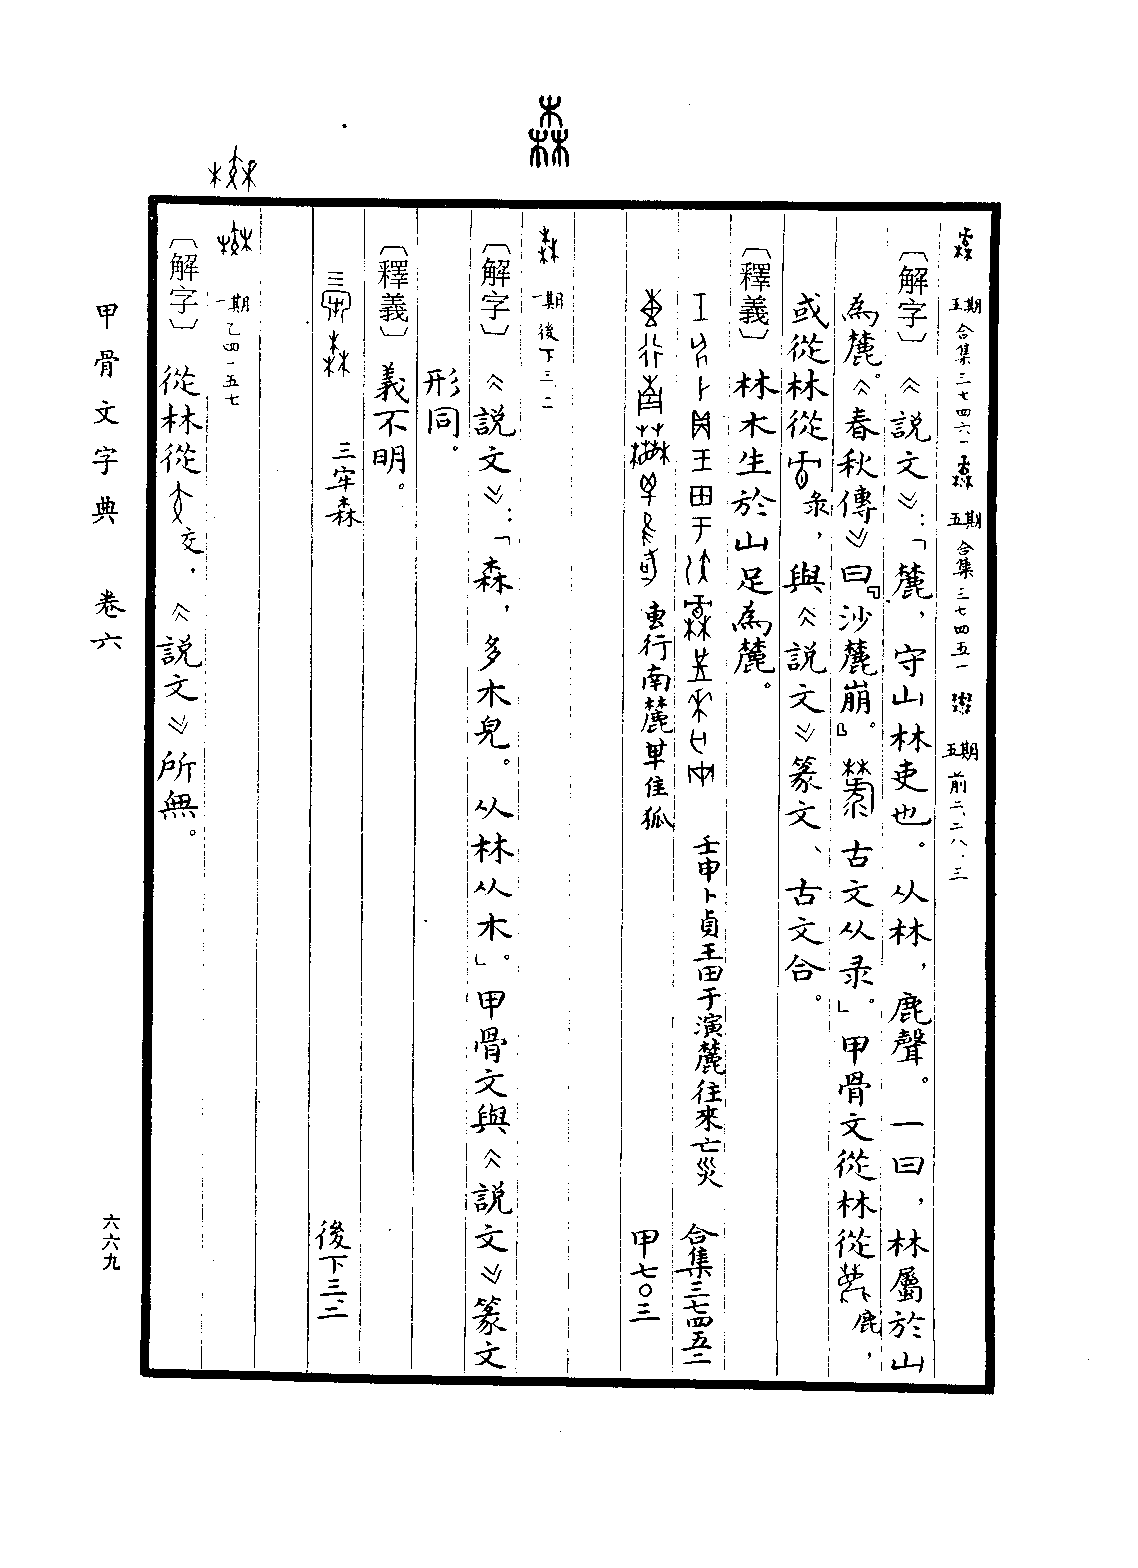 森
五期 合集三七四六一 五期 合集三七四五一 五期 前二、二八、三
〔解字〕《說文》：「麓，守山林吏也。从林，鹿聲。一曰，林屬於山
為麓。《春秋傳》曰『沙麓崩。』古文从彔。」甲骨文從林從鹿，
或從林從彔，與《說文》篆文、古文合。
〔釋義〕林木生於山足為麓。
壬申卜貞王田于演麓往來亡災 合集三七四五二
叀行南麓隹狐 甲七〇三
一期 後下三、二
〔解字〕《說文》：「森，多木皃。从林从木」。甲骨文與《說文》篆文
形同。
〔釋義〕義不明。
三牢森 後下三、二
一期 乙四一五七
〔解字〕從林從交，《說文》所無。
甲骨文字典 卷六
六六九